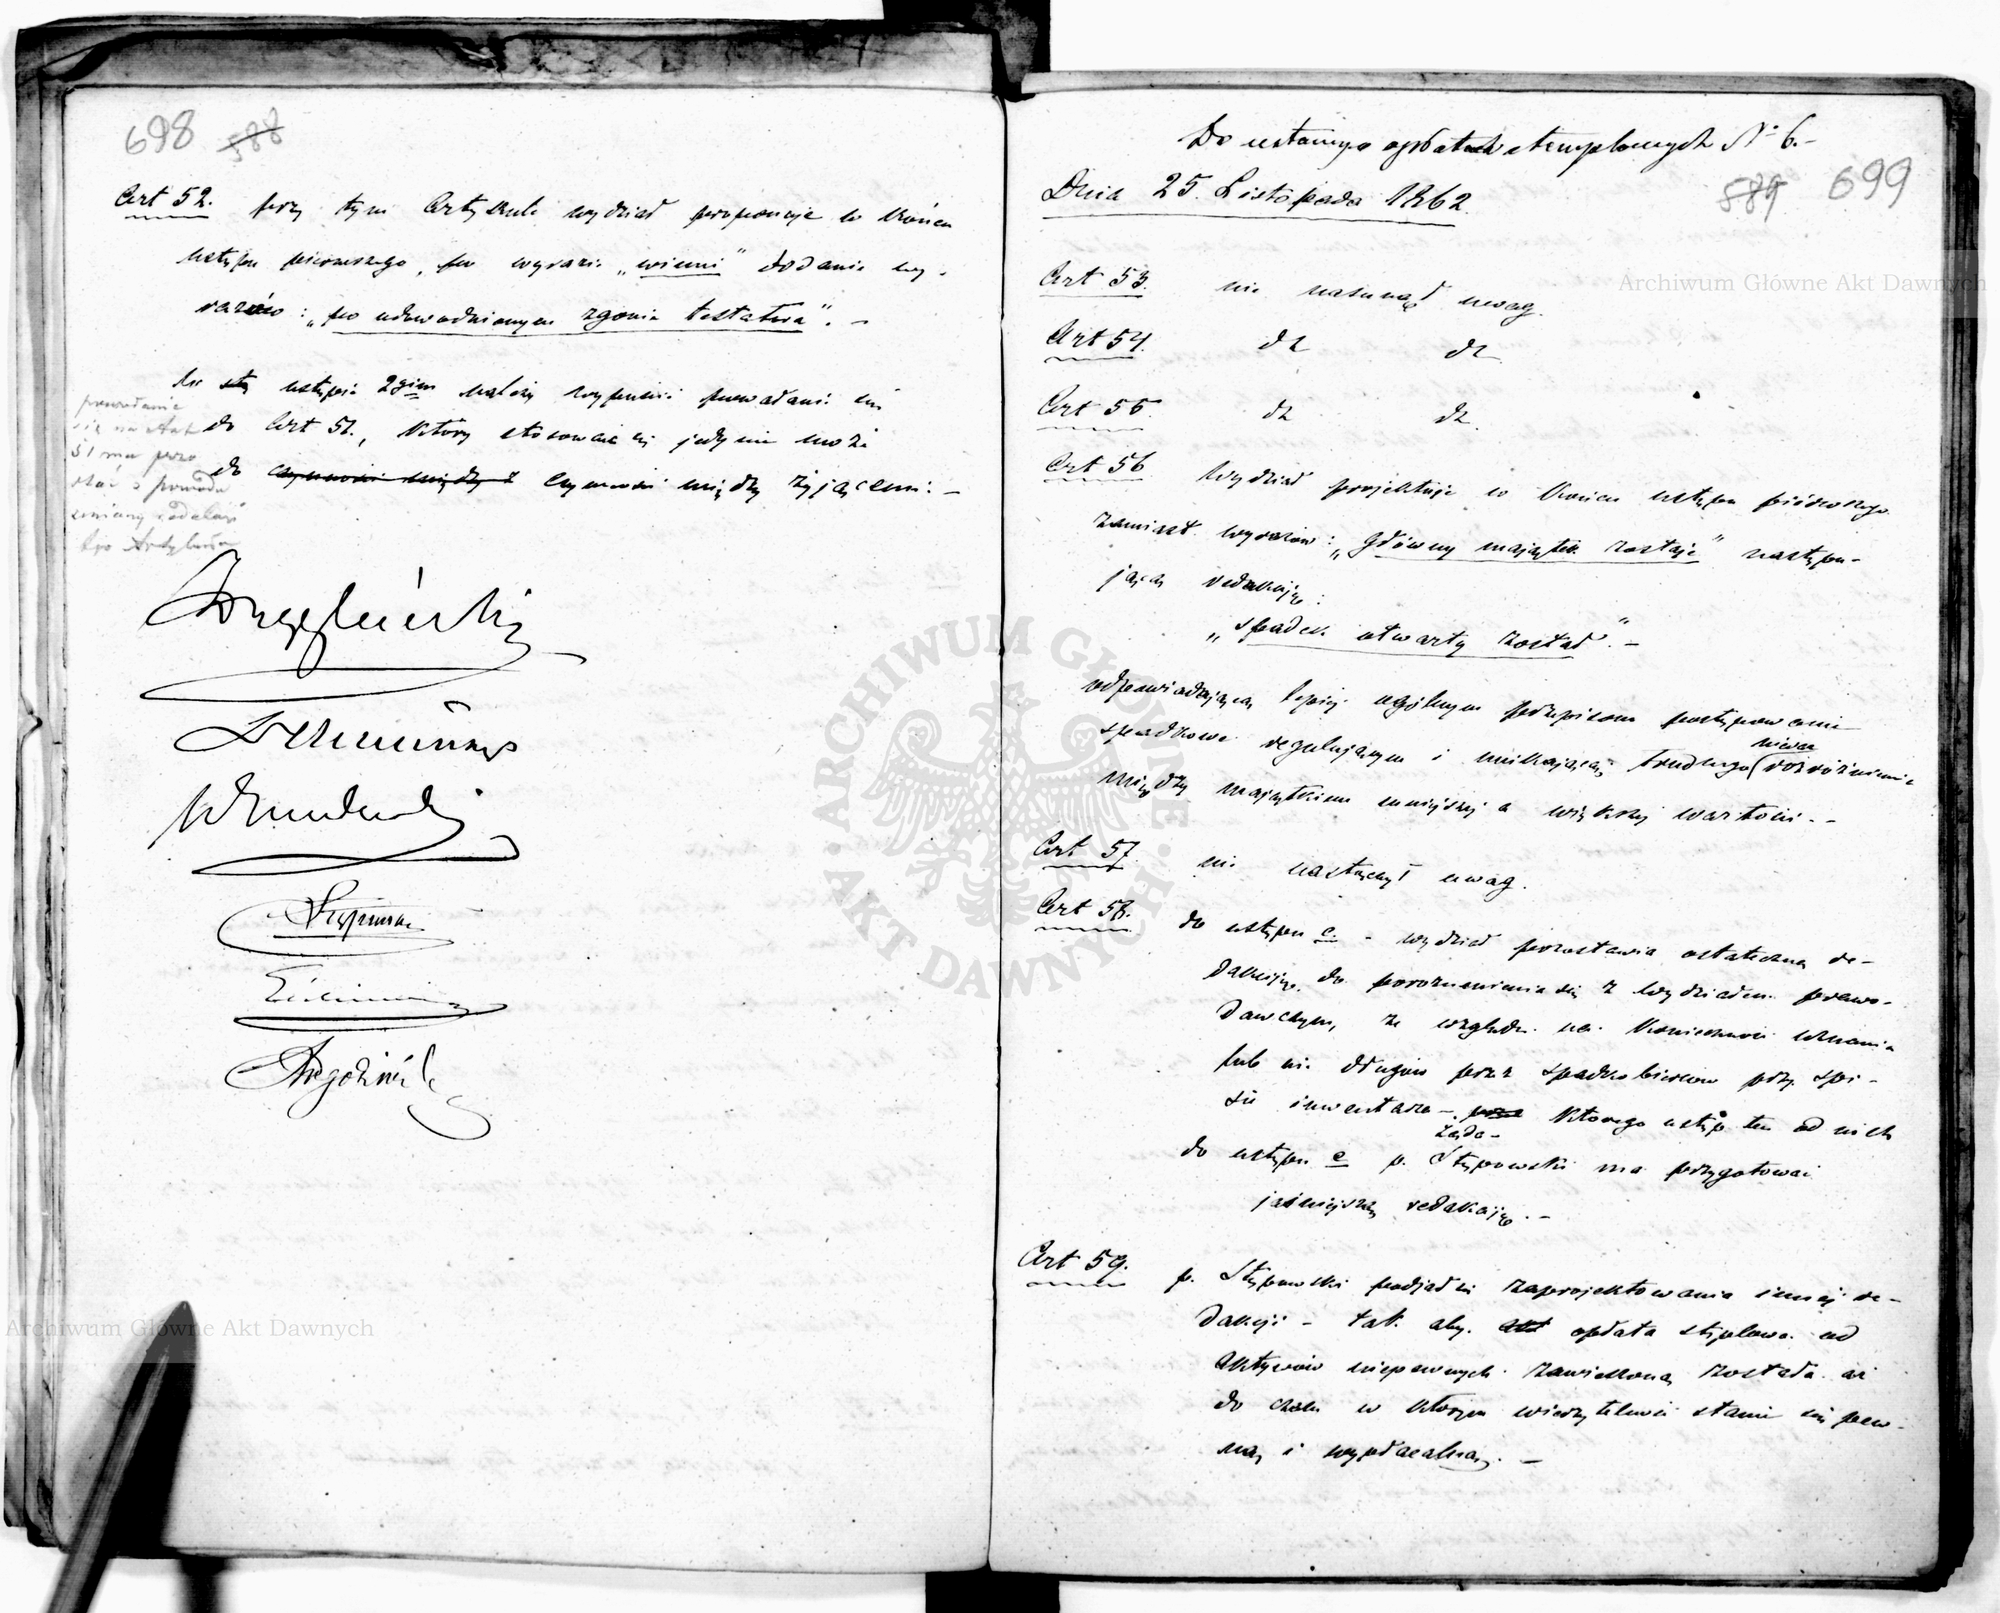 698 588
Art 52. przy tym Artykule wydział proponuje w końcu
ustępu pierwszego, po wyrazie „winni" dodanie wy-
razów: „po udowodnionym zgonie testatora". –
w ustępie 2gim należy wypuścić powołanie się
do Art 51., który stosować się jedynie może
do czynności między ż czynności między żyjącemi. –
powołanie
się na Art
51 ma pozo
stać z powodu
zmiany redakcyi
tego Artykułu
Do ustawy o opłatach stemplowych N° 6.–
Dnia 25. Listopada 1862.
589 699
Art 53. nie nasunął uwag.
Art 54. dt dt
Art 55. dt dt.
Art 56. Wydział projektuje w końcu ustępu pierwszego
zamiast wyrazów: „główny majątek zostaje" następu-
jącą redakcyję:
„spadek otwarty został". –
odpowiadającą lepiej ogólnym przepisom postępowanie
spadkowe regulującym i unikającą trudnego nieraz rozróżnienia
między majątkiem mniejszej a większej wartości. –
Art 57. nie nastręczył uwag.
Art 58. do ustępu c. – wydział pozostawia ostateczną re-
dakcyję do porozumienia się z Wydziałem prawo-
dawczym, ze względu na konieczność uznania
lub nie długów przez spadkobierców przy spi-
sie inwentarza – którego ustęp ten od nich
żąda –
do ustępu e p. Stypowski ma przygotować
jaśniejszą redakcyję. –
Art 59. p. Stypowski podjął się zaprojektowania innej re-
dakcyi – tak aby opłata stęplowa od
aktywów niepewnych zawieszoną została aż
do czasu w którym wierzytelność stanie się pew-
ną i wypłacalną. –
Archiwum Główne Akt Dawnych
Archiwum Główne Akt Dawnych
ARCHIWUM GŁÓWNE · AKT DAWNYCH ·